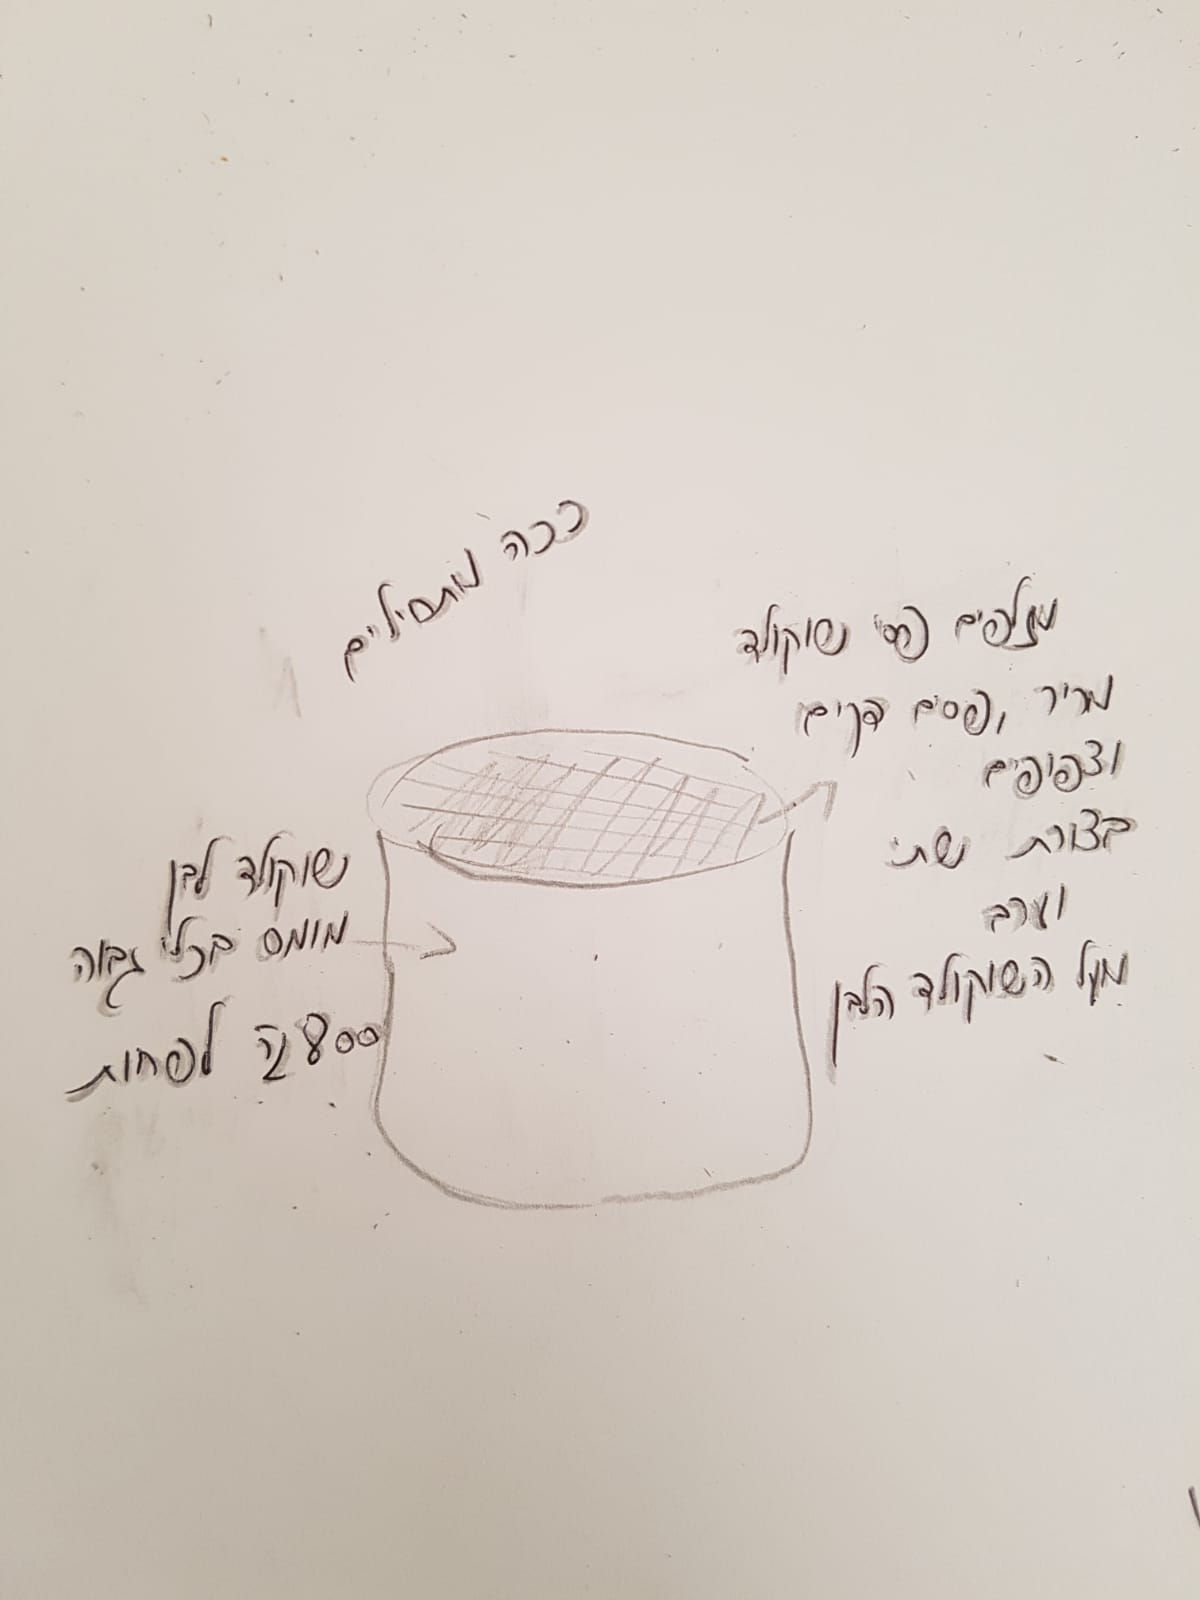 ככה מתחילים
מזלפים פסי שוקולד
מריר, פסים דקים
וצפופים
בצורת שתי
וערב
מעל השוקולד הלבן
שוקולד לבן
מומס בכלי גבוה
800 גר לפחות